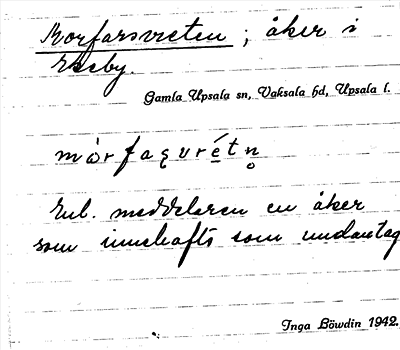 Morfarsvreten ; åker i
Ekeby.
Gamla Upsala sn, Vaksala hd, Upsala l.
Enl. meddelaren en åker
som innehafts som undantag
Inga Böwdin 1942.